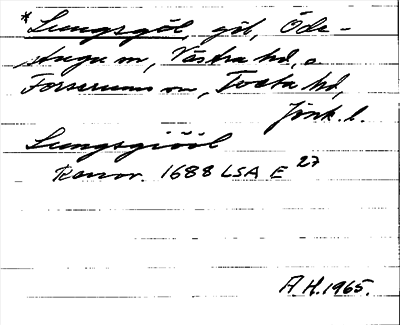 *Lungsgöl, göl, Öde-
stugu sn, Västra hd, o.
Forserums sn, Tveta hd,
Jönk. l.
Lungsgiööl
Ransr. 1688 LSA E 27
A.H. 1965.